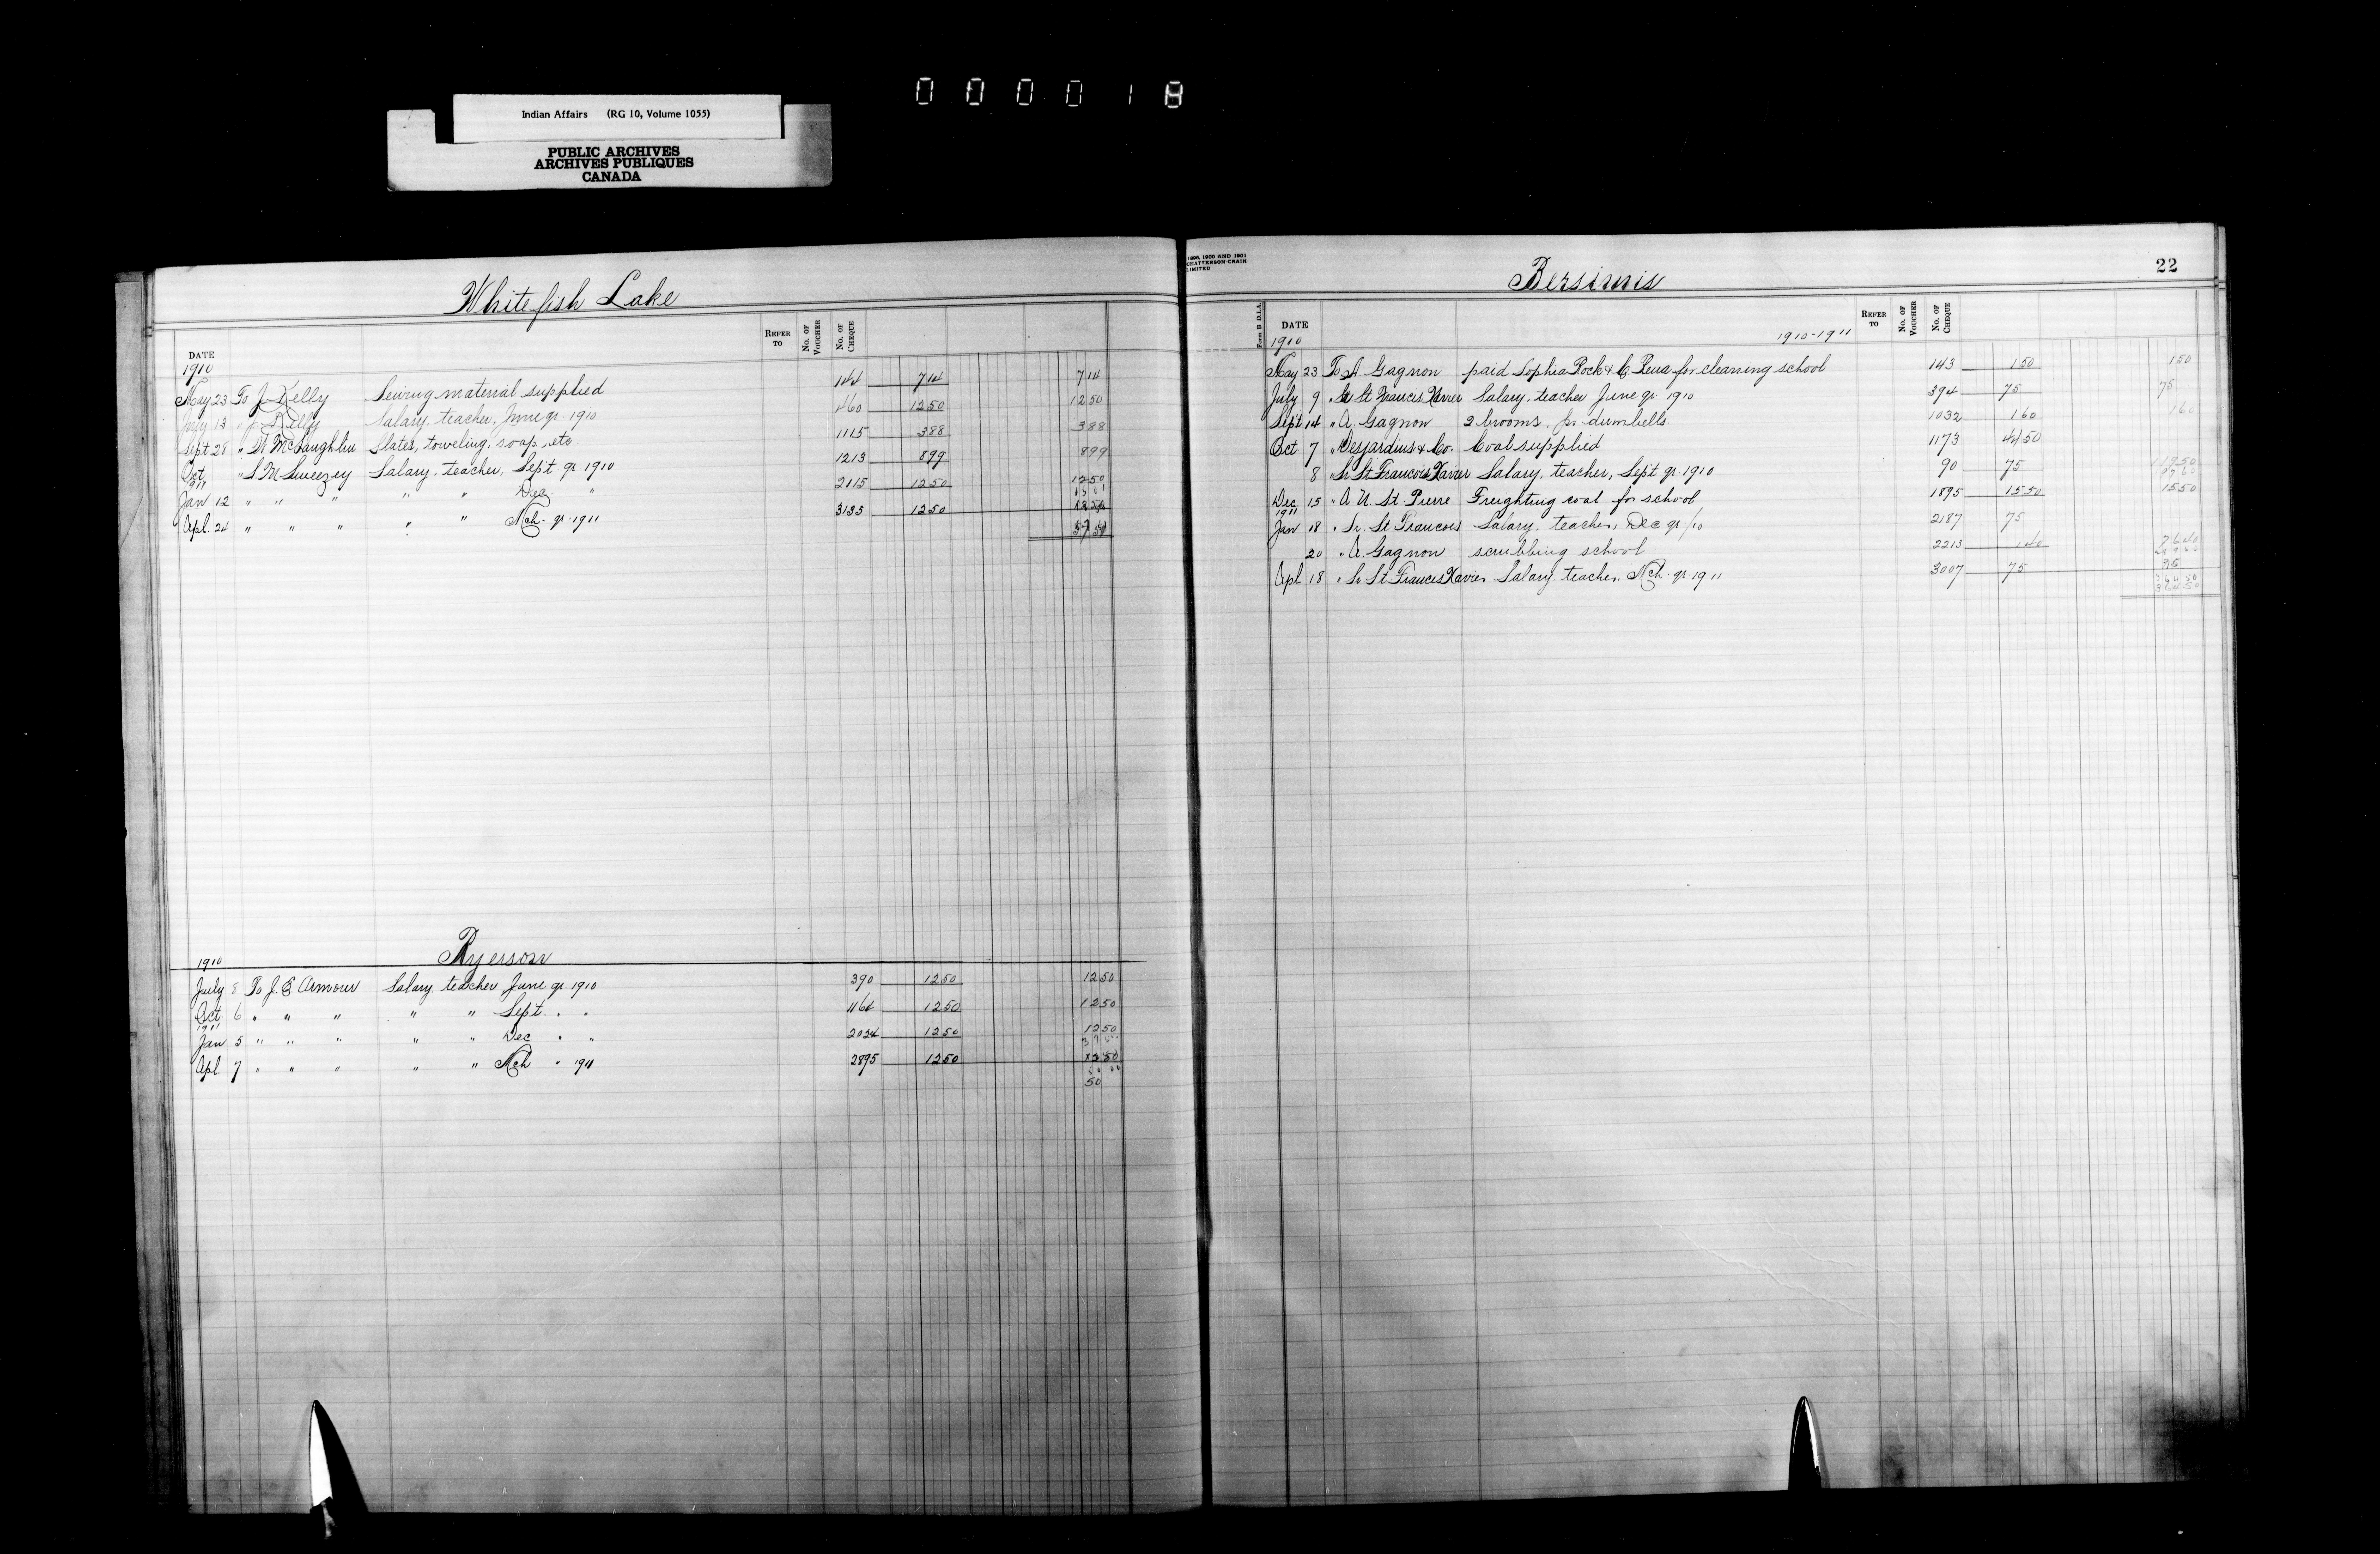 000018
Indian Affairs (RG 10, Volume 1055)
PUBLIC ARCHIVES
ARCHIVES PUBLIQUES
CANADA
Whitefish Lake
DATE REFER TO No. OF VOUCHER No. OF CHEQUE
1910
May 23 To J. Kelly Sewing material supplied 144 7 14 7 14
July 13 " J. Kelly Salary, teacher, June qr. 1910 460 12 50 12 50
Sept 28 " McLaughlin Slates, toweling, soap, etc. 1115 3 88 3 88
Oct. " S. M. Sweezey Salary, teacher, Sept qr 1910 1213 8 99 8 99
1911
Jan 12 " " " " " Dec. " 2115 12 50 12 50
Apl. 24 " " " " " Mch. qr. 1911 3135 12 50 12 50
57 51
Ryerson
1910
July 8 To J. E Armour Salary teacher June qr 1910 390 12 50 12 50
Oct 6 " " " " " Sept. " " 1164 12 50 12 50
1911
Jan 5 " " " " " Dec " " 2024 12 50 12 50
37 50
Apl. 7 " " " " " Mch " 1911 2895 12 50 12 50
50 00
50
1898, 1900 AND 1901
CHATTERSON-CRAIN
LIMITED
Bersimis
22
Form B D.I.A.
DATE REFER TO No. OF VOUCHER No. OF CHEQUE
1910 1910-1911
May 23 To A. Gagnon paid Sophia Rock & C. for cleaning school 143 1 50 1 50
July 9 " Sr St Francis Xavier Salary, teacher June qr 1910 394 75 75
Sept 14 " A. Gagnon 2 brooms, pr dumbells 1032 1 60 1 60
Oct 7 " Desjardins & Co. Coal supplied 1173 44 50
8 " Sr St Francois Xavier Salary, teacher, Sept qr 1910 90 75 119 50
Dec 15 " A. St. Pierre Freighting coal for school 1895 15 50 15 50
1911
Jan 18 " Sr. St Francois Salary, teacher, Dec qr/10 2187 75
20 " A. Gagnon scrubbing school 2213 1 40 76 40
Apl 18 " Sr St Francis Xavier Salary teacher, Mch. qr 1911 3007 75 75
364 50
364 50